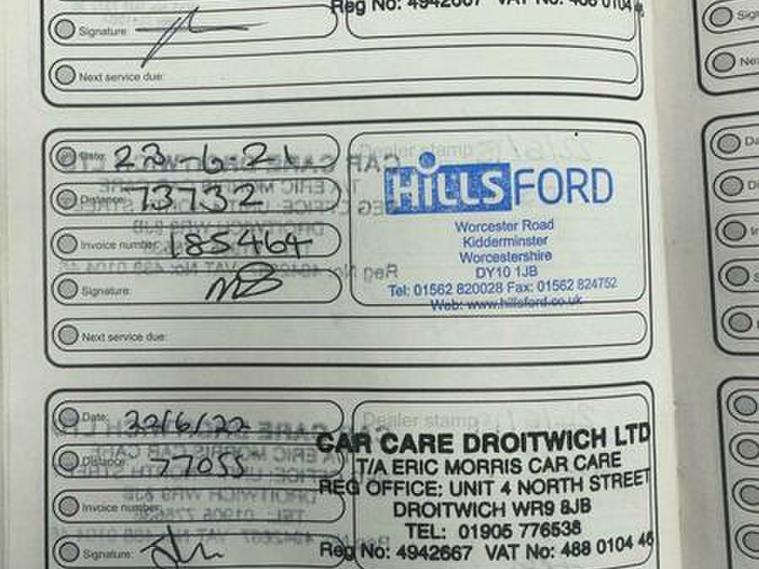 Reg No: 4942667 VAT No: 488 0104 46
Signature:
Next service due:
Date: 23-6-21
Dealer stamp
Distance: 73732
HiLLS FORD
Invoice number: 185464
Worcester Road
Kidderminster
Worcestershire
DY10 1JB
Signature:
Tel: 01562 820028 Fax: 01562 824752
Web: www.hillsford.co.uk
Next service due:
Date: 22/6/22
Dealer stamp
CAR CARE DROITWICH LTD
Distance: 77055
T/A ERIC MORRIS CAR CARE
REG OFFICE: UNIT 4 NORTH STREET
Invoice number:
DROITWICH WR9 8JB
TEL: 01905 776538
Signature:
Reg No: 4942667 VAT No: 488 0104 46